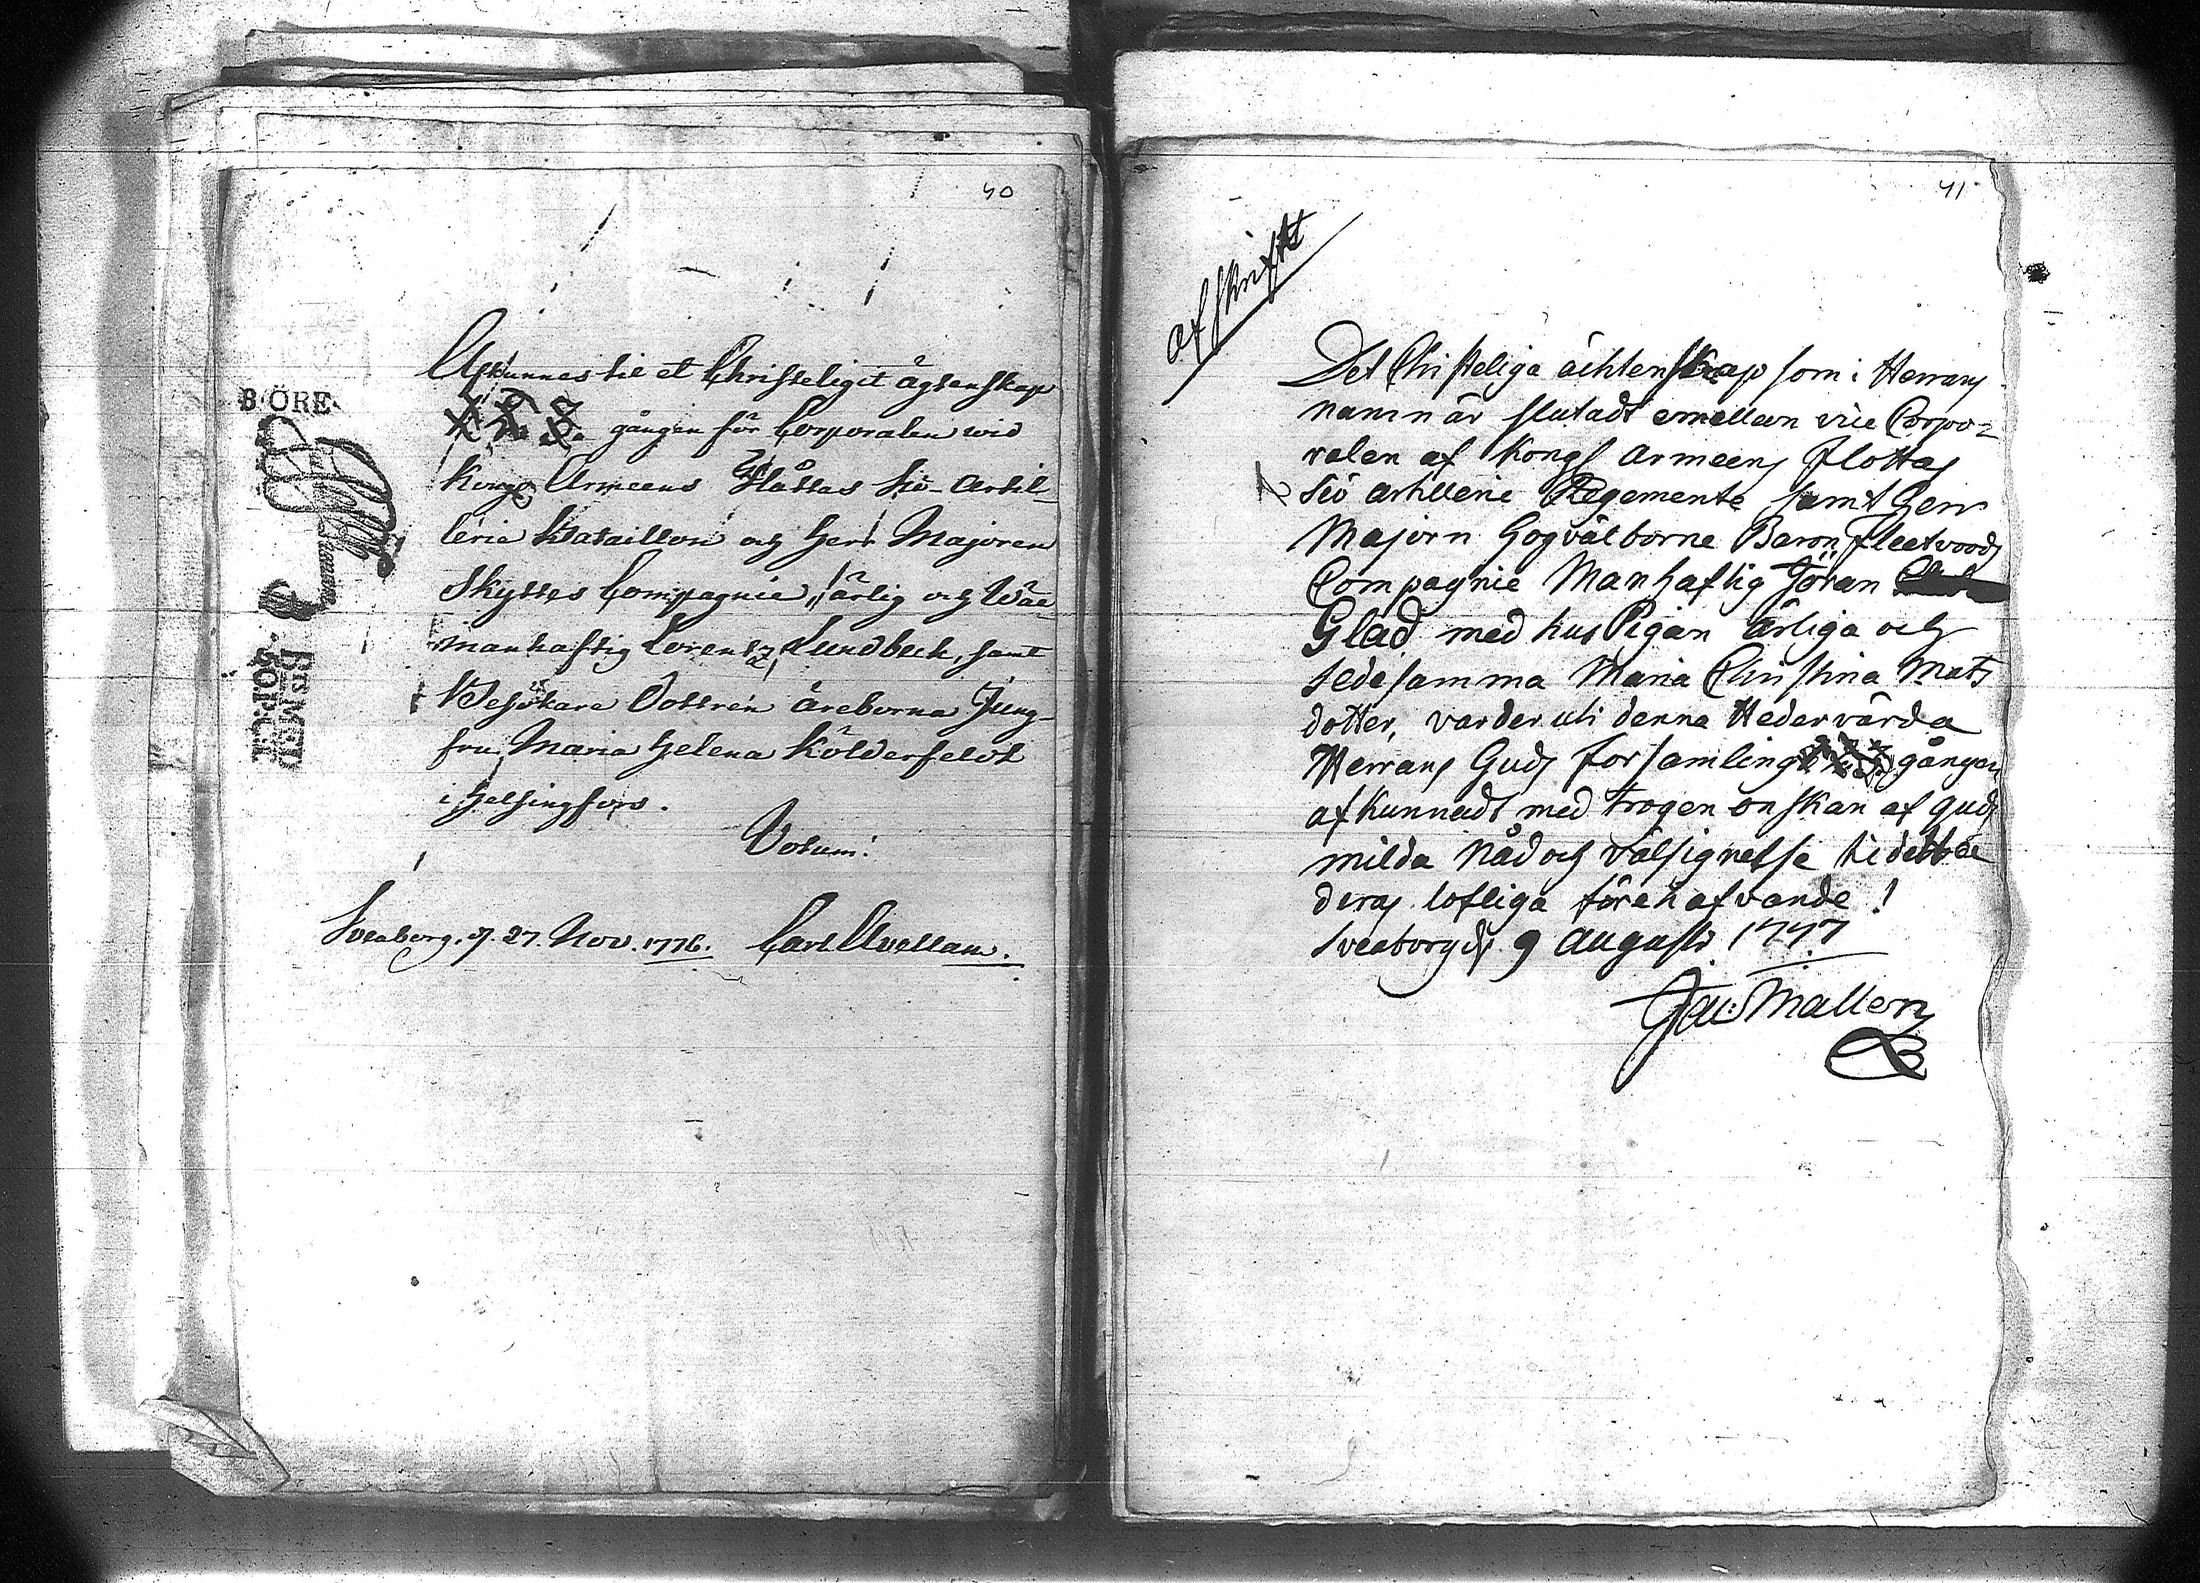 40
Afkunnes til et Christeligit ägtenskap
1. 2. 3. gången för Corporalen wid
Kongl Armeens Flottas Siö-Artil-
lerie Bataillon och Herr Majoren
Skyttes Compagnie, ärlig och Wäl-
manhaftig Lorentz Lundbeck, samt
Besökare Dottren äreborna Jung-
fru Maria Helena Kölderfeldt
i Helsingfors.
Votum:
Sveaborg. d. 27. Nov. 1776. Carl Avellan.
8 ÖRE
SÖLF:MT
41
afskrift
Det Christeliga ächtenskap som i Herrans
namn är slutadt emellan vice Corpo-
ralen af Kongl Armeens flottas
Siö Artillerie Regemente samt Herr
Majorn Högvälborne Baron Fleetwoods
Compagnie Manhaftig Jöran
Glad med hus Pigan ärliga och
sedesamma Maria Christina Mats
dotter, varder uti denna Hedervärda
Herrans Guds församling 1. 2. 3. gången
afkunnadt med trogen önskan af Guds
milda Nåd och välsignelse til detta
deras lofliga förehafvande!
Sveaborg d. 9 Augusti 1777
Gu: Mallen